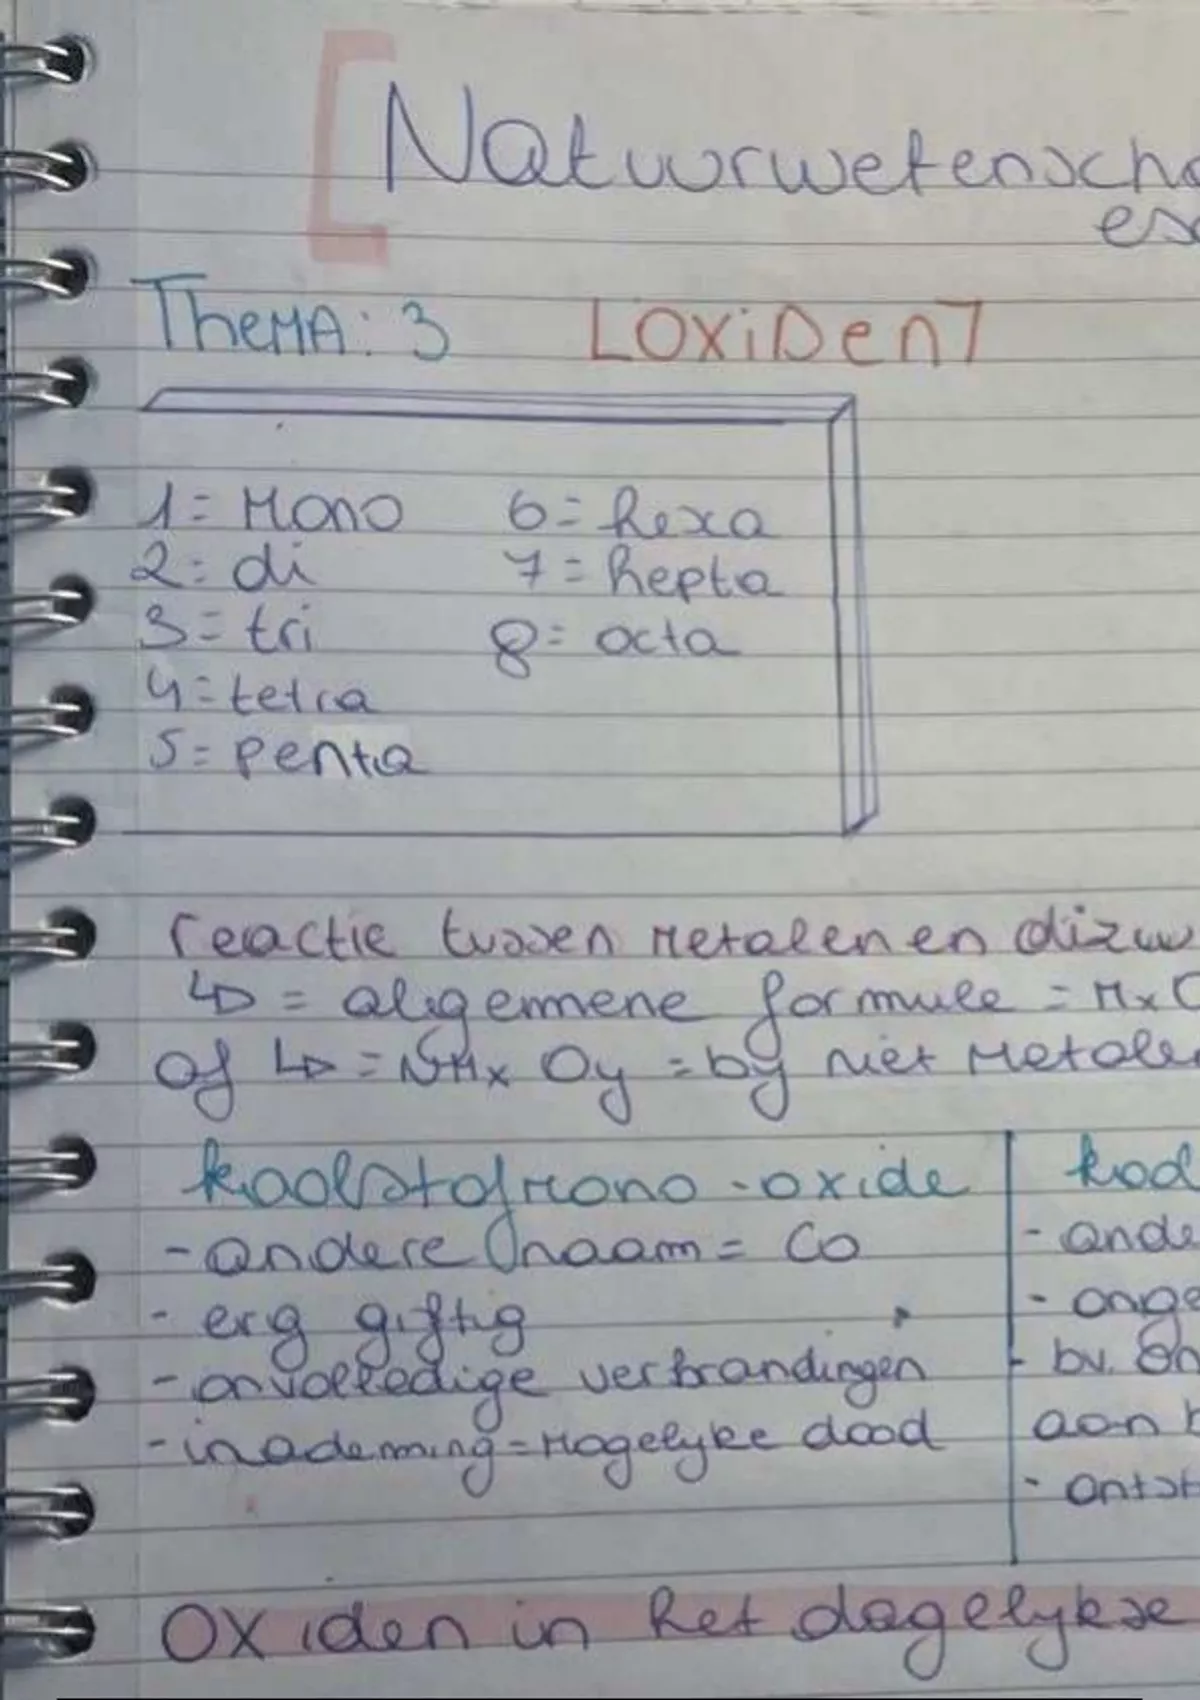 Natuurwetenscha
es
Thema: 3 LOXiDen7
1 = Mono 6 = hexa
2 = di 7 = hepta
3 = tri 8 = octa
4 = tetra
5 = penta
reactie tussen Metalen en dizuu
= algemene formule = Mx O
of = NMx Oy = by niet Metalen
koolstofmono-oxide kool
- andere naam = Co - ande
- erg giftig - onge
- onvolledige verbrandingen - bv. On
- inademing = Mogelyke dood aan h
- ontst
Oxiden in het dagelykse